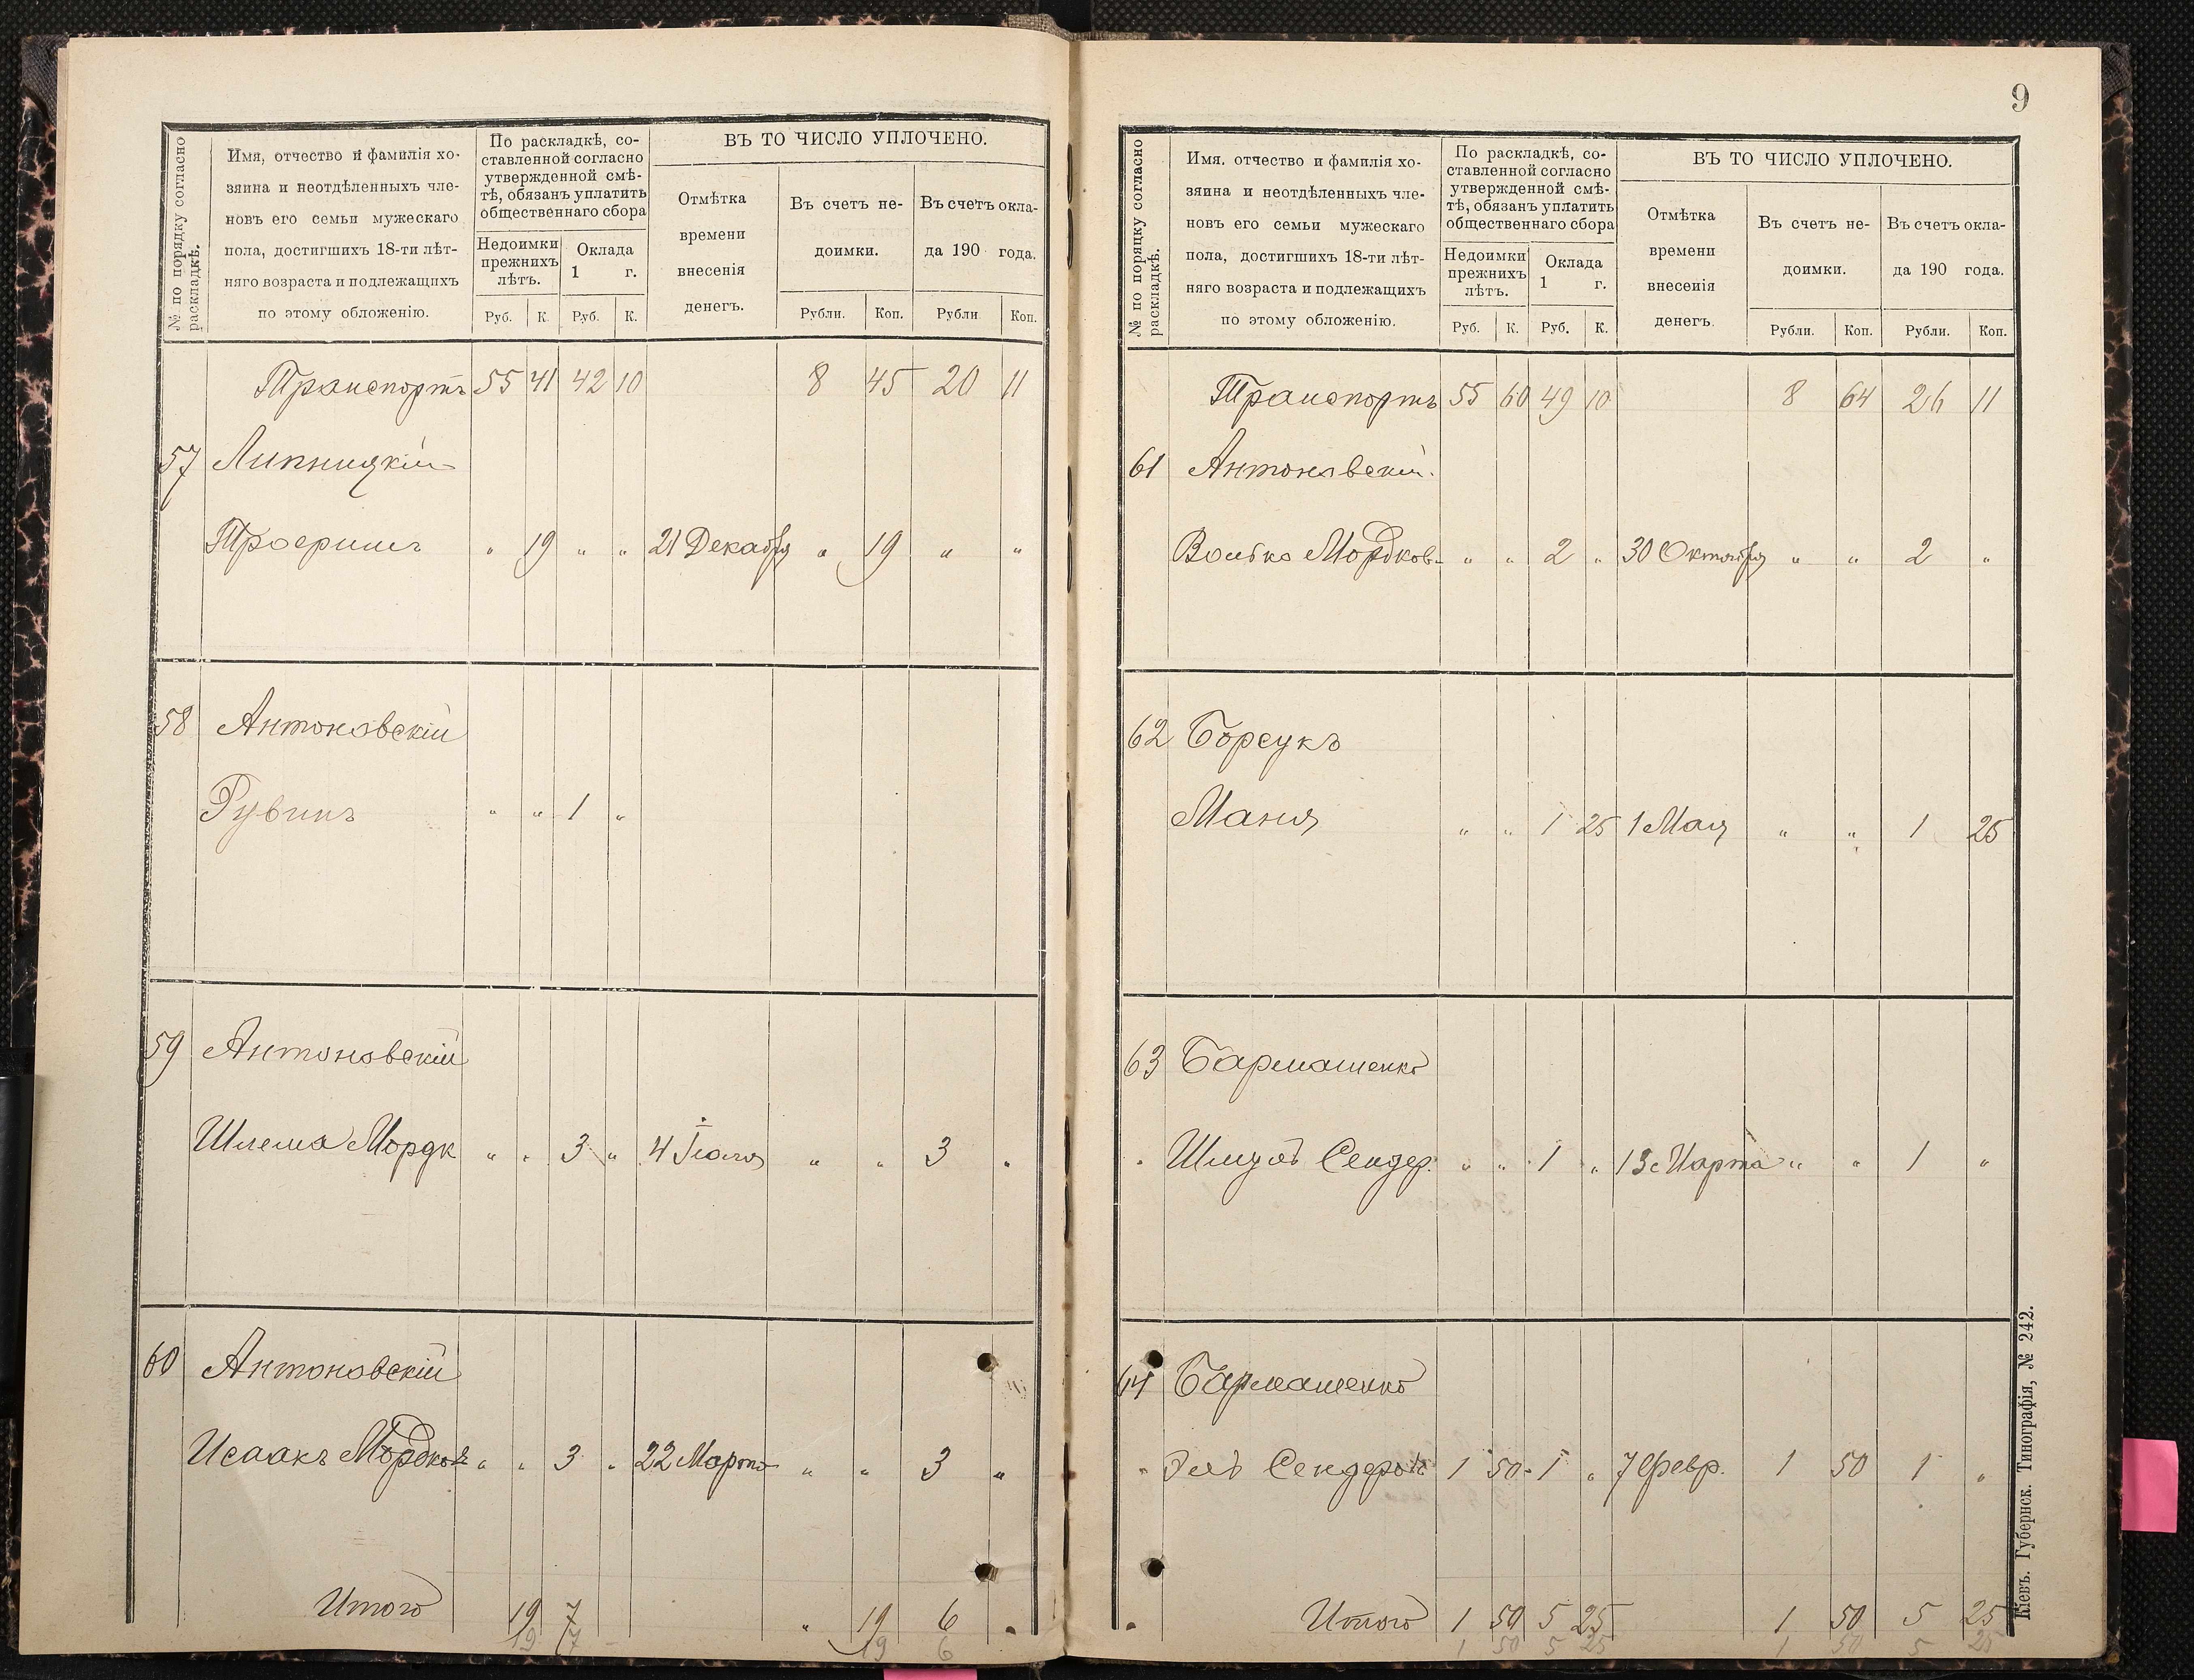 № по порядку согласно раскладкѣ.
Имя, отчество и фамилія хо-
зяина и неотдѣленныхъ чле-
новъ его семьи мужескаго
пола, достигшихъ 18-ти лѣт-
няго возраста и подлежащихъ
по этому обложенію.
По раскладкѣ, со-
ставленной согласно
утвержденной смѣ-
тѣ, обязанъ уплатить
общественнаго сбора
Недоимки
прежнихъ
лѣтъ.
Оклада
1 г.
Руб. К. Руб. К.
ВЪ ТО ЧИСЛО УПЛОЧЕНО.
Отмѣтка
времени
внесенія
денегъ.
Въ счетъ не-
доимки.
Въ счетъ окла-
да 190 года.
Рубли. Коп. Рубли Коп.
Транспортъ 55 41 42 10 8 45 20 11
57 Липницкій
" 19 " " 21 Декабря " 19 " "
58 Антоновскій
Рувинъ " " 1 "
59 Антоновскій
Шлема Мордк " " 3 " 4 Іюля " " 3 "
60 Антоновскій
Исаакъ Мордков " " 3 " 22 Марта " " 3 "
Итого 19 7 " 19 6 "
19 7 19 6
9
№ по порядку согласно раскладкѣ.
Имя. отчество и фамилія хо-
зяина и неотдѣленныхъ чле-
новъ его семьи мужескаго
пола, достигшихъ 18-ти лѣт-
няго возраста и подлежащихъ
по этому обложенію.
По раскладкѣ, со-
ставленной согласно
утвержденной смѣ-
тѣ, обязанъ уплатить
общественнаго сбора
Недоимки
прежнихъ
лѣтъ.
Оклада
1 г.
Руб. К. Руб. К.
ВЪ ТО ЧИСЛО УПЛОЧЕНО.
Отмѣтка
времени
внесенія
денегъ.
Въ счетъ не-
доимки.
Въ счетъ окла-
да 190 года.
Рубли. Коп. Рубли. Коп.
Транспортъ 55 60 49 10 8 64 26 11
61 Антоновскій.
Волько Мордков. " " 2 " 30 Октября " " 2 "
62 Борсукъ
Маня " " 1 25 1 Мая " " 1 25
63 Бармашенко
Шмуль Сендер. " " 1 " 13 Марта " " 1 "
64 Бармашенко
Эль Сендеров 1 50 1 " 7 Февр. 1 50 1 "
Итого 1 50 5 25 1 50 5 25
1 50 5 25 1 50 5 25
Кіевъ. Губернск. Типографія, № 242.